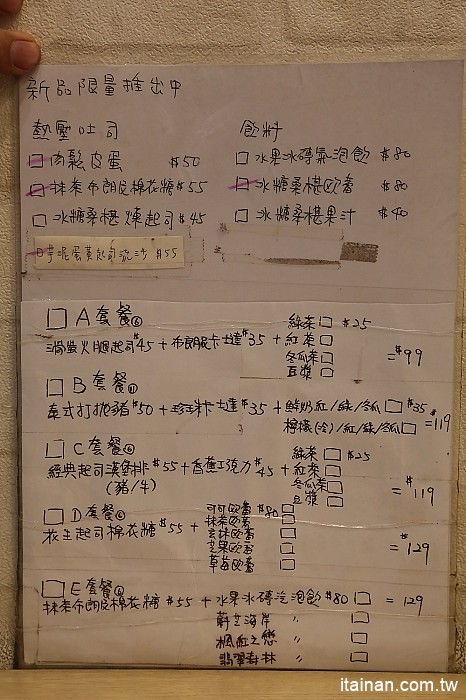 新品限量推出中
熱壓吐司
飲料
□肉鬆皮蛋 $50
□水果冰磚氣泡飲 $80
□抹茶布朗尼棉花糖 $55
□冰糖桑椹歐蕾 $80
□冰糖桑椹煉起司 $45
□冰糖桑椹果汁 $40
□芋泥蛋黃起司流沙 $55
□A套餐⑥
綠茶□ $25
鴻螢火腿起司$45+布朗尼卡士達$35+紅茶□
冬瓜茶□
豆漿□
=$99
□B套餐⑪
泰式打拋豬$50+珍珠卡士達$35+鮮奶紅/綠/冬瓜□$35
檸檬(冷)/紅/綠/冬瓜□
=$119
□C套餐⑥
綠茶□ $25
經典起司漢堡排$55+香蕉巧克力$45+紅茶□
(豬/牛)
冬瓜茶□
豆漿□
=$119
□D套餐⑥
可可歐蕾$80□
抹茶歐蕾□
花生起司棉花糖$55+玄米歐蕾□
芒果歐蕾□
草莓歐蕾□
=$129
□E套餐⑥
抹茶布朗尼棉花糖$55+水果冰磚汽泡飲$80□=129
蔚藍海岸 〃 □
楓紅之戀 〃 □
翡翠森林 〃 □
itainan.com.tw